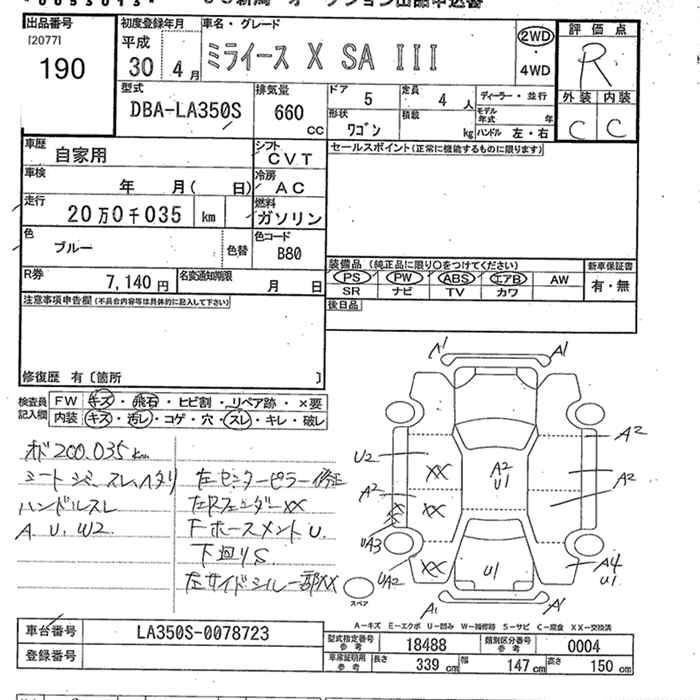 出品番号
[2077]
190
初度登録年月
平成
30年4月
車名・グレード
ミライース X SA III
2WD
・
4WD
評価点
R
外装 内装
C C
型式
DBA-LA350S
排気量
660
cc
ドア
5
定員
4人
ディーラー・並行
形状
ワゴン
積載
kg
モデル年式 年
ハンドル 左・右
車歴
自家用
シフト
CVT
セールスポイント(正常に機能するものに限ります)
車検
年 月( 日)
冷房
AC
走行
20万0千035 km
燃料
ガソリン
色
ブルー
色替
色コード
B80
装備品(純正品に限り○をつけてください)
新車保証書
PS PW ABS エアB AW
SR ナビ TV カワ
有・無
R券
7,140円
名変通知期限
月 日
後日品
注意事項申告欄(不具合内容等は具体的に記入して下さい)
修復歴 有〔箇所 〕
検査員
記入欄
FW キズ・飛石・ヒビ割・リペア跡・×要
内装 キズ・汚レ・コゲ・穴・スレ・キレ・破レ
オド200.035km
シートジミ スレ ヘタリ
ハンドルスレ
A. U. W2.
左センターピラー修正
左Rフェンダー XX
Fホースメント U.
下廻りS
左サイドシル一部XX
A1 A1
U2
XX
A2
U1
A2
A2
A2
XX
UA3
UA2
XX
U1
A4
U1
A1 A1
スペア
A-キズ E-エクボ U-凹み W-補修跡 S-サビ C-腐食 XX-交換済
車台番号
LA350S-0078723
登録番号
型式指定番号
参考
18488
類別区分番号
参考
0004
車庫証明用
参考
長さ
339cm
幅
147cm
高さ
150cm